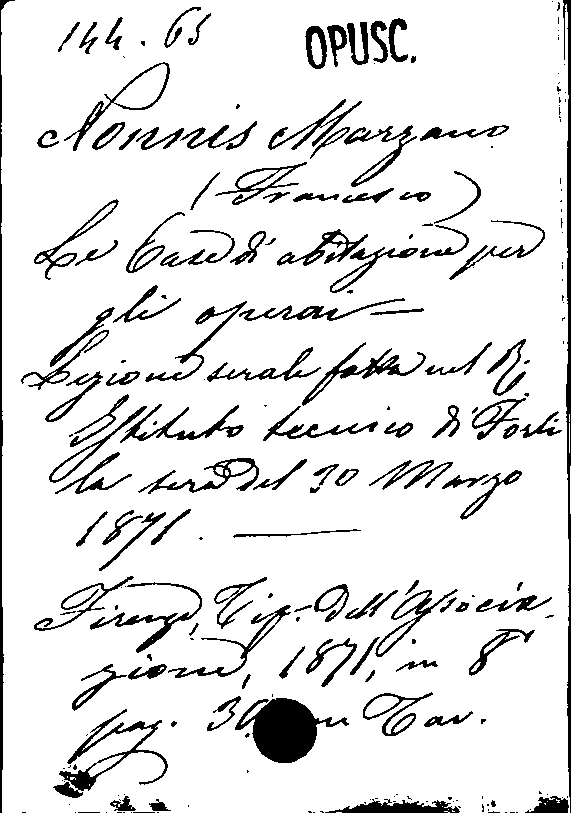 144.65 OPUSC.
Nonnis Marzano
(Francesco)
Le Case di abitazione per
gli operai —
Lezione serale fatta nel R.
Istituto tecnico di Forlì
la sera del 30 Marzo
1871. —
Firenze, Tip. dell'Associa-
zione, 1871, in 8°
pag. 30 Tav.